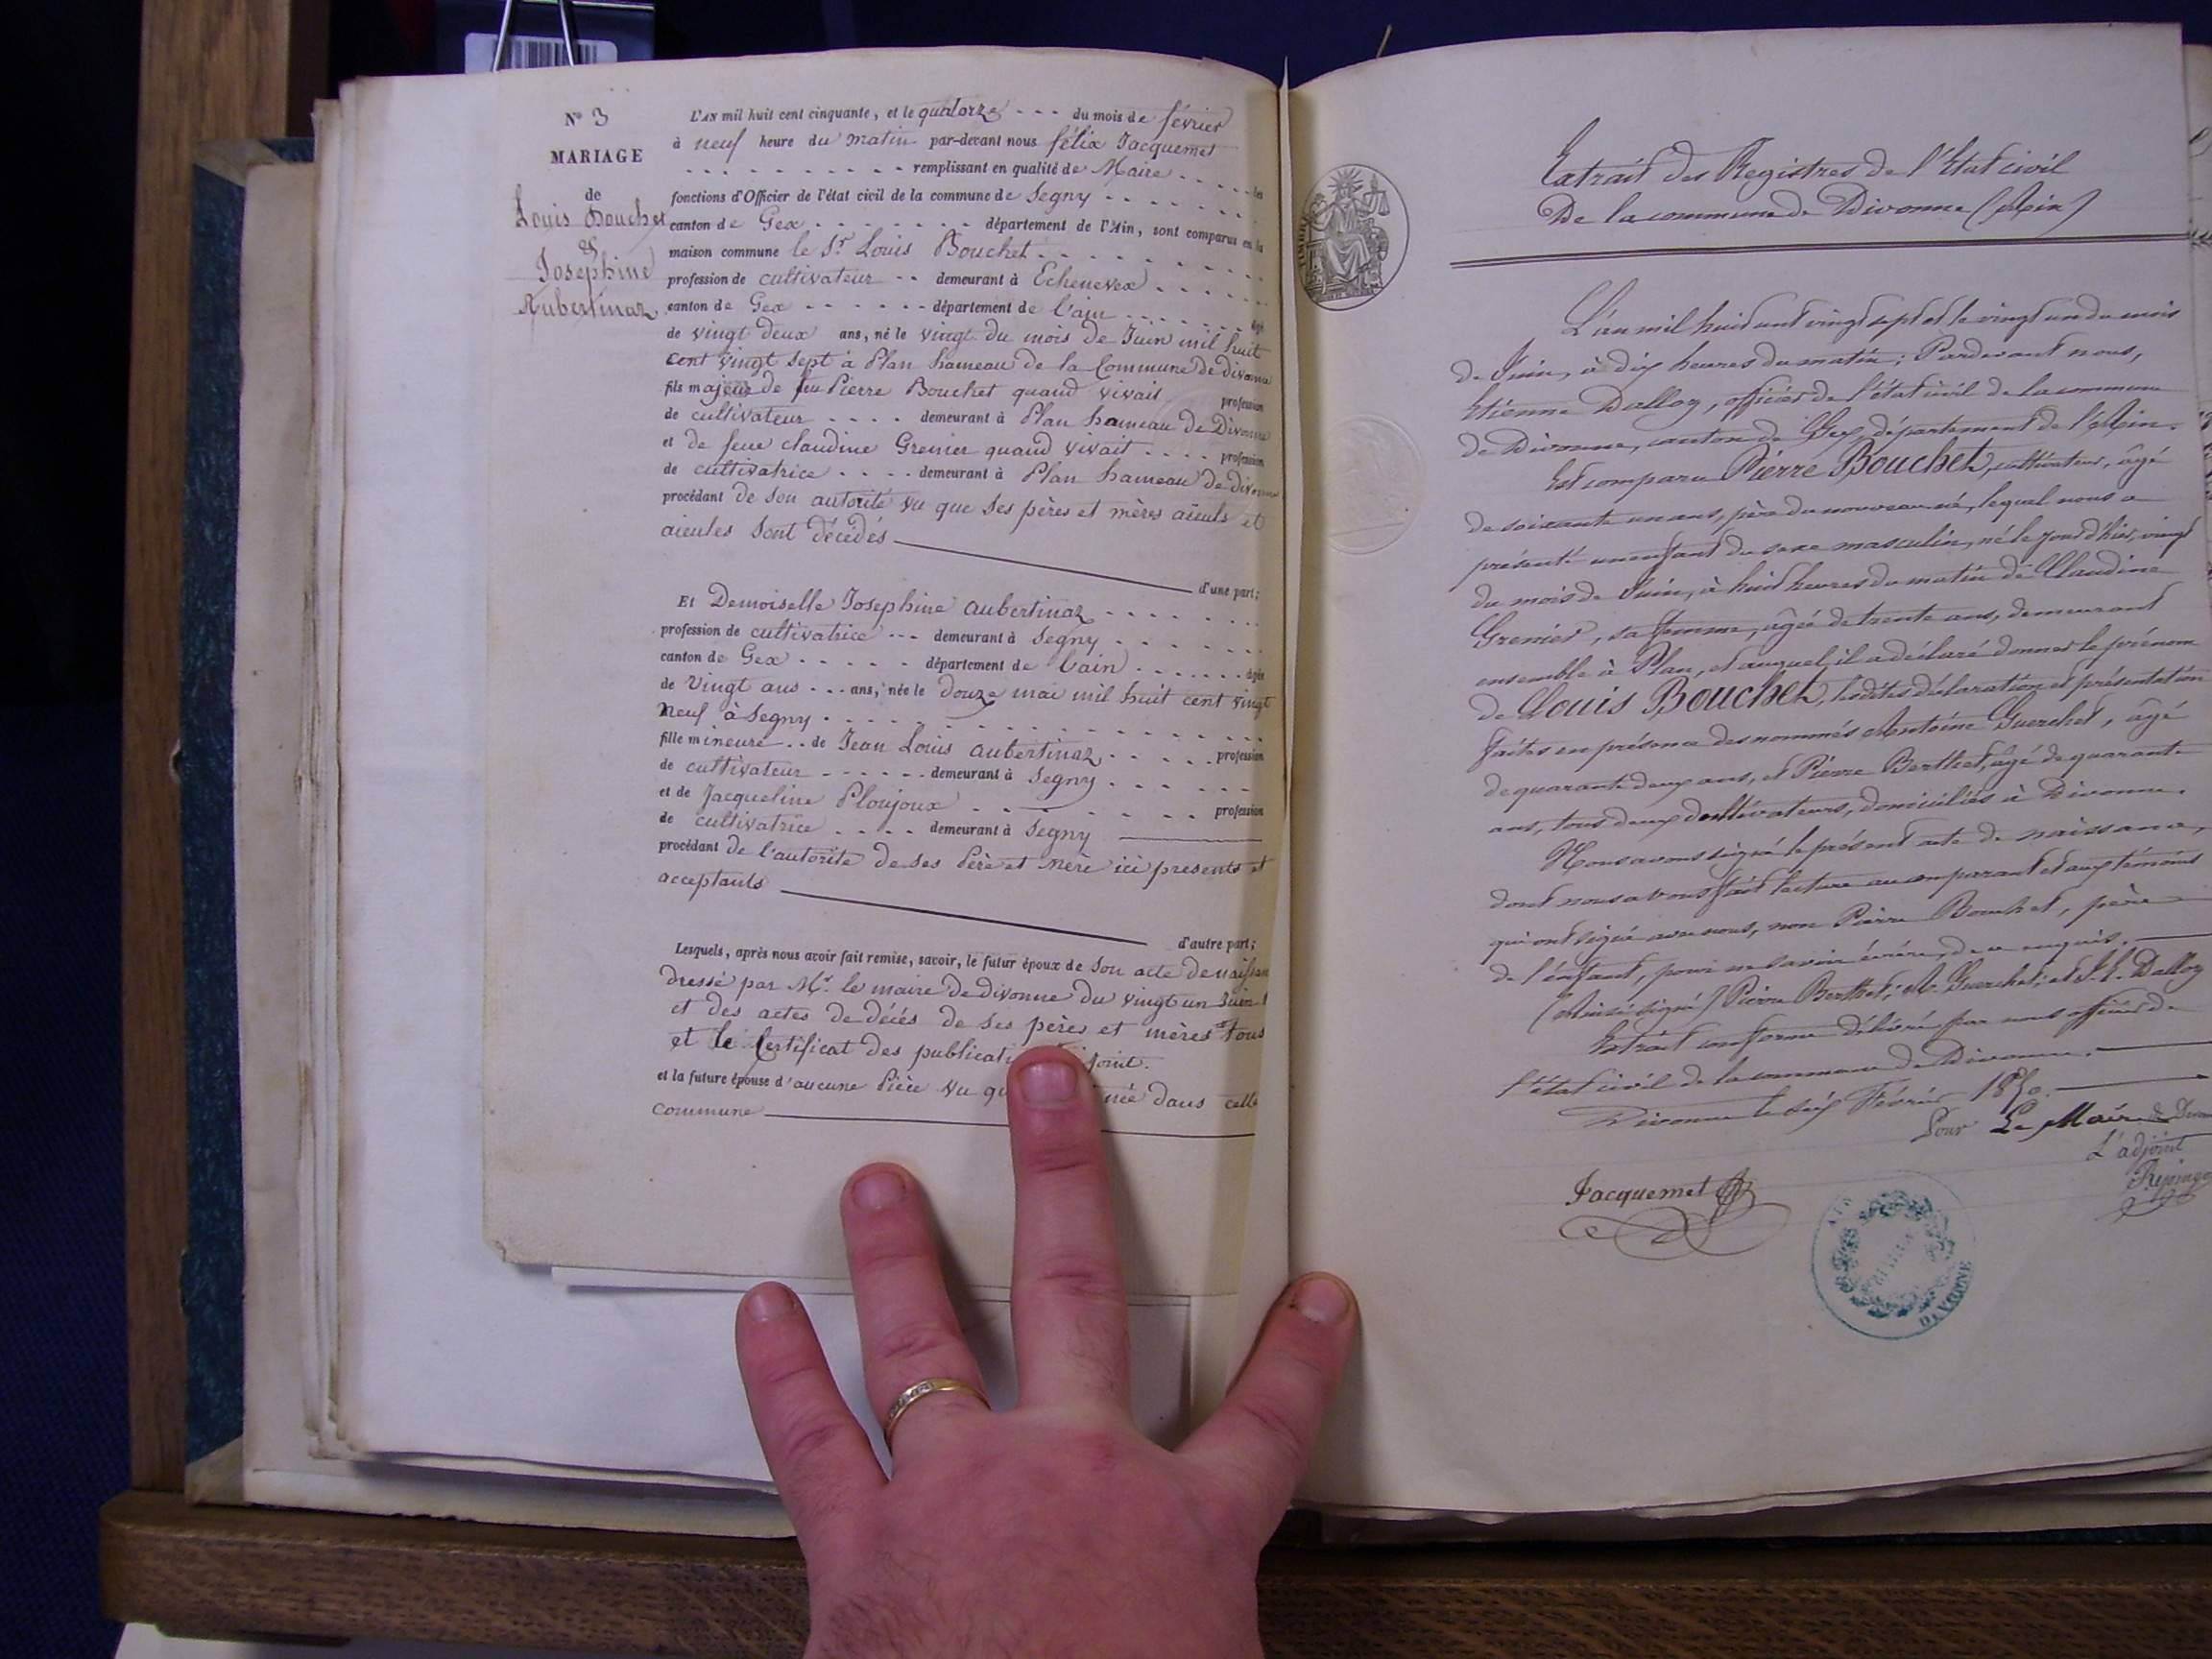 N° 3
MARIAGE
de
Louis Bouchet
et
Josephine
Aubertinaz
L'AN mil huit cent cinquante, et le quatorze - - - du mois de février
à neuf heure du matin par-devant nous félix Jacquemet
- - - - - - - - - - remplissant en qualité de Maire - - - - - les
fonctions d'Officier de l'état civil de la commune de Segny - - - - - - -
canton de Gex - - - - - - - département de l'Ain, sont comparus en la
maison commune le Sr Louis Bouchet - - - - - - - - -
profession de cultivateur - - demeurant à Echenevex - - - - - -
canton de Gex - - - - - - département de l'ain - - - - - - - âgé
de vingt deux ans, né le vingt du mois de Juin mil huit
cent vingt sept à Plan hameau de la Commune de divonne
fils majeur de feu Pierre Bouchet quand vivait profession
de cultivateur - - - - demeurant à Plan hameau de Divonne
et de feue claudine Grenier quand vivait - - - - profession
de cultivatrice - - - - demeurant à Plan hameau de divonne
procédant de son autorité vu que ses pères et mères aïeuls et
aieules sont décédés
d'une part;
Et Demoiselle Josephine aubertinaz - - - - - - -
profession de cultivatrice - - - demeurant à Segny - - - - - -
canton de Gex - - - - - département de l'ain - - - - - - âgée
de vingt ans - - - ans, née le douze mai mil huit cent vingt
neuf à Segny - - - - - - - - - - - - -
fille mineure - - de Jean Louis aubertinaz - - - - - profession
de cultivateur - - - - - - demeurant à Segny - - - - - -
et de Jacqueline Ploujoux - - - - - - - - profession
de cultivatrice - - - - demeurant à Segny
procédant de l'autorité de ses Père et mère ici présents et
acceptants
d'autre part;
Lesquels, après nous avoir fait remise, savoir, le futur époux de son acte de naissance
dressé par Mr. le maire de divonne du vingt un Juin
et des actes de décés de ses pères et mères tous
et le Certificat des publicati joint.
et la future épouse d'aucune Pièce vu qu née dans cette
commune
Extrait des Registres de l'Etat civil
De la commune de Divonne (Ain)
L'an mil huit cent vingt sept et le vingt un du mois
de Juin, à dix heures du matin; Pardevant nous,
Etienne Dalloz, officier de l'état civil de la commune
de Divonne, canton de Gex, département de l'Ain.
Est comparu Pierre Bouchet, cultivateur, âgé
de soixante un ans, père du nouveau né, lequel nous a
présenté un enfant du sexe masculin, né le jour d'hier, vingt
du mois de Juin, à huit heures du matin de Claudine
Grenier, sa femme, âgée de trente ans, demeurant
ensemble à Plan, et auquel il a déclaré donner le prénom
de Louis Bouchet, lesdites déclaration et présentation
faites en présence des nommés Antoine Guerchet, âgé
de quarante deux ans, et Pierre Berthet, âgé de quarante
ans, tous deux cultivateurs, domiciliés à Divonne.
Nous avons signé le présent acte de naissance,
dont nous avons fait lecture au comparant et aux témoins
qui ont signé avec nous, non Pierre Bouchet, père
de l'enfant, pour ne savoir écrire, de ce enquis.
(Ainsi signé) Pierre Berthet; A. Guerchet; et Dalloz
Extrait conforme délivré par nous officier de
l'état civil de la commune de Divonne.
Divonne le Février 1850.
Pour Le Maire de Divonne
L'adjoint
Jacquemet
DIVONNE
AIN